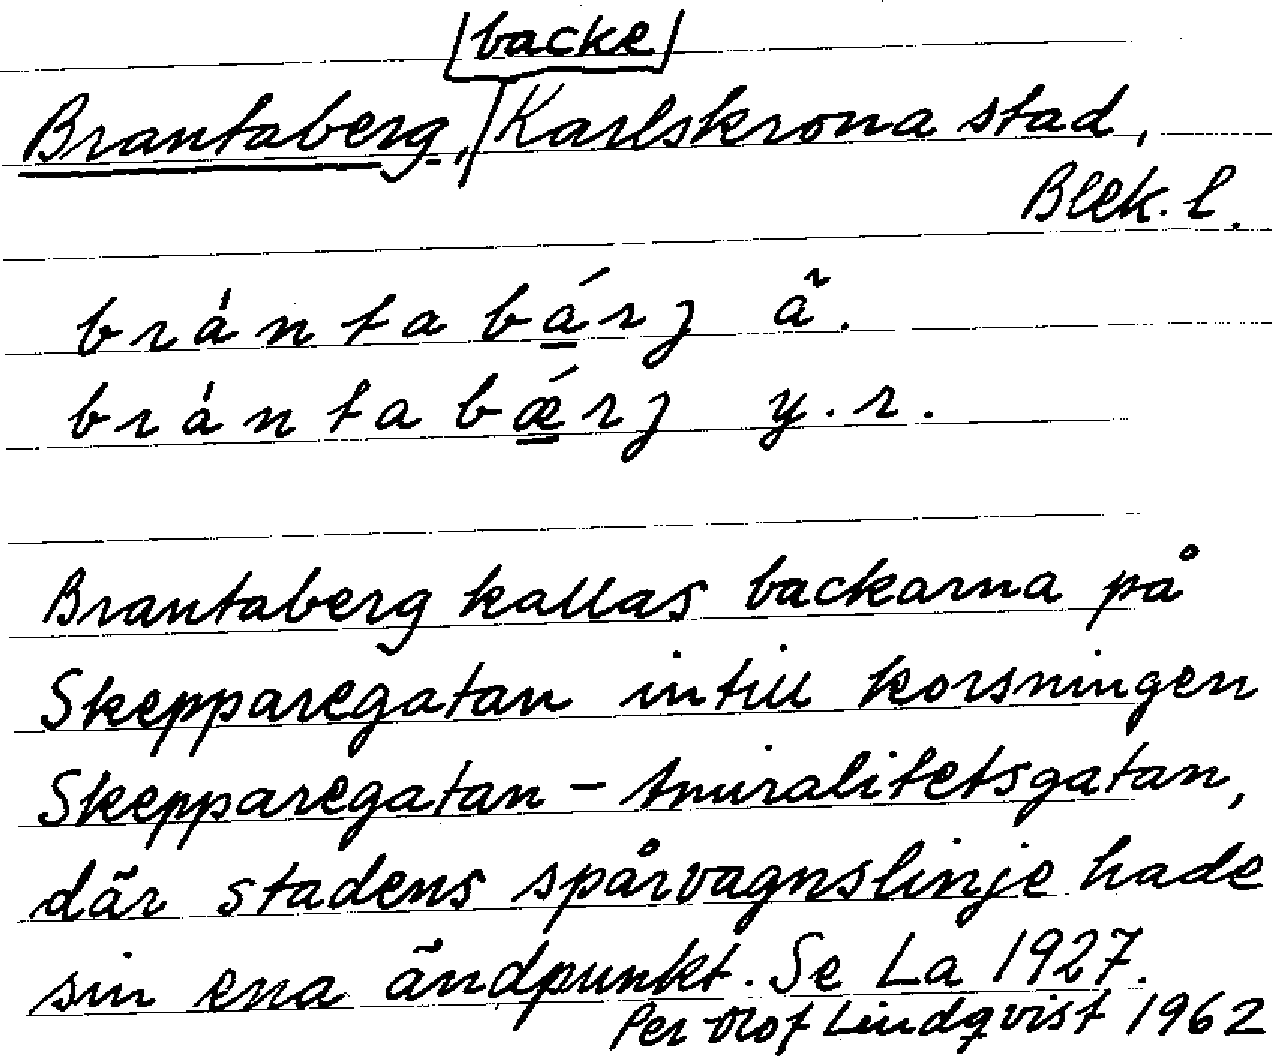 backe
Brantaberg, Karlskrona stad,
Blek. l.
brántabárj ä.
brántabǽrj y.r.
Brantaberg kallas backarna på
Skepparegatan intill korsningen
Skepparegatan – Amiralitetsgatan,
där stadens spårvagnslinje hade
sin ena ändpunkt. Se La 1927.
Per-Olof Lindqvist 1962